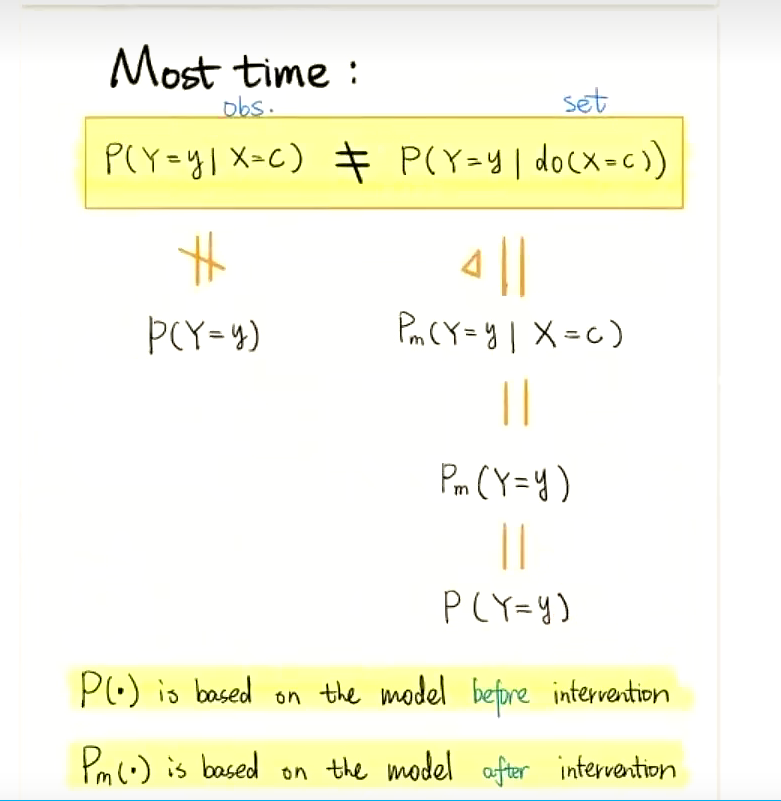 Most time :
obs. set
P(Y=y| X=C) ≠ P(Y=y | do(X=c))
≠ △ ||
P(Y=y) Pm(Y=y | X=c)
||
Pm(Y=y)
||
P(Y=y)
P(·) is based on the model before intervention
Pm(·) is based on the model after intervention